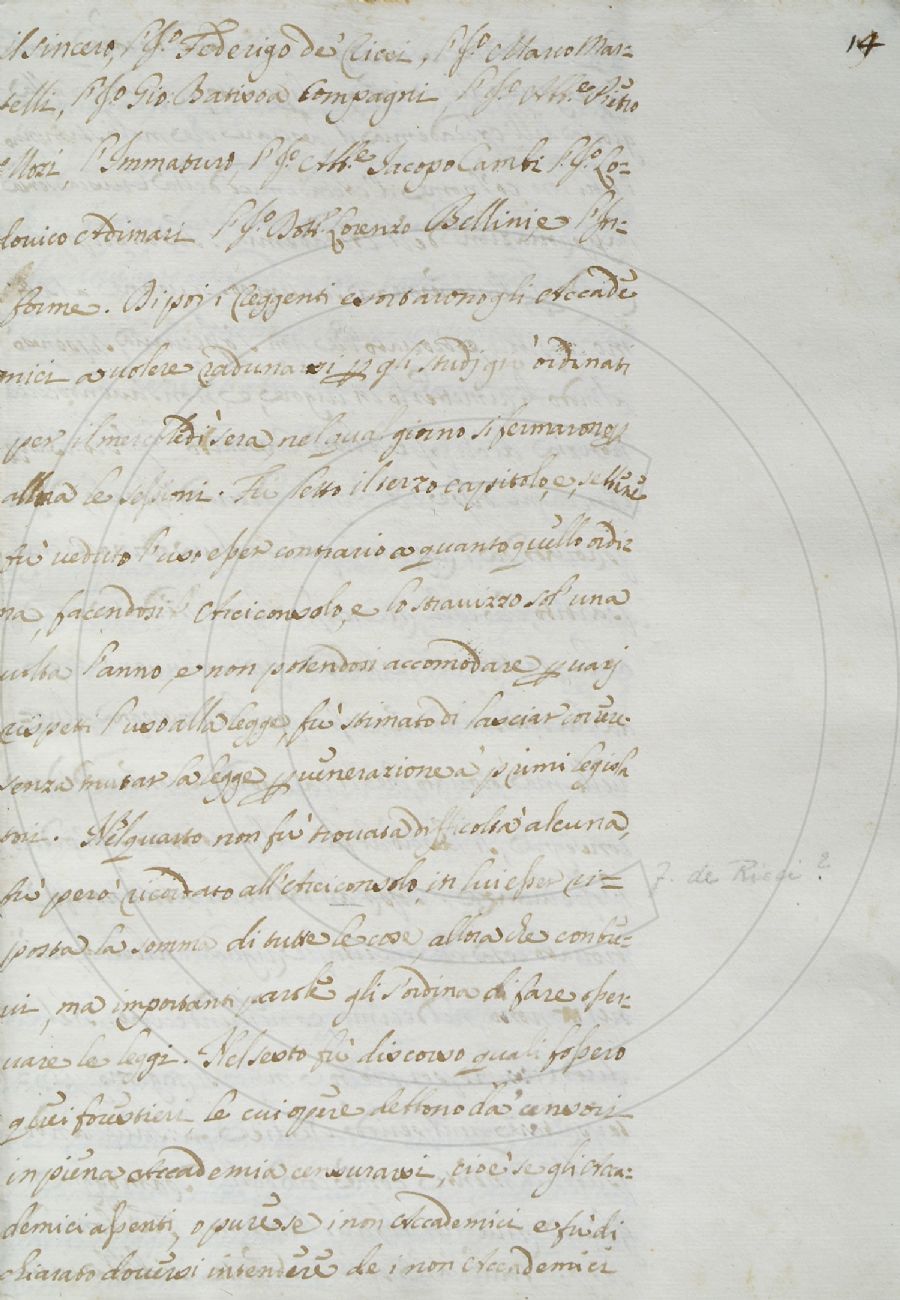 14
il Sincero, l'Ill.o Federigo de Ricci, l'Ill.o Marco Mar-
telli, l'Ill.o Gio: Batista Compagni l'Ill.o Abb.e Pietro
Mozi l'Immaturo, l'Ill.o Abb.e Jacopo Cambi l'Ill.o Lo-
dovico Adimari l'Ill.o Dott.r Lorenzo Bellini e l'In-
forme. Di poi i Reggenti esortarono gli Accade
mici a volere radunarsi p gli studj già ordinati
per il mercoledì sera nel qual giorno si fermarono p
allora le sessioni. Fù letto il terzo capitolo, e, se bene
fù veduto l'uso esser contrario a quanto quello ordi-
na, facendosi Arciconsolo, e lo stravizzo sol' una
volta l'anno, e non potendosi accomodare p varj
rispetti l'uso alla legge, fù stimato di lasciar correre
senza mutar la legge p venerazione a' primi legisla
tori. Nel quarto non fù trovata difficoltà alcuna,
fù però ricordato all'Arciconsolo in lui esser ri-
posta la somma di tutte le cose, allora che con bre-
vi, ma importanti parole gli s'ordina di fare osser-
vare le leggi. Nel sesto fù discorso quali fossero
quei forestieri le cui opere debbono da' censori
in piena Accademia censurarsi, cioè se gli Acca-
demici assenti, o pure se i non Accademici e fù di
chiarato doversi intendere de i non Accademici
F. de Ricci?